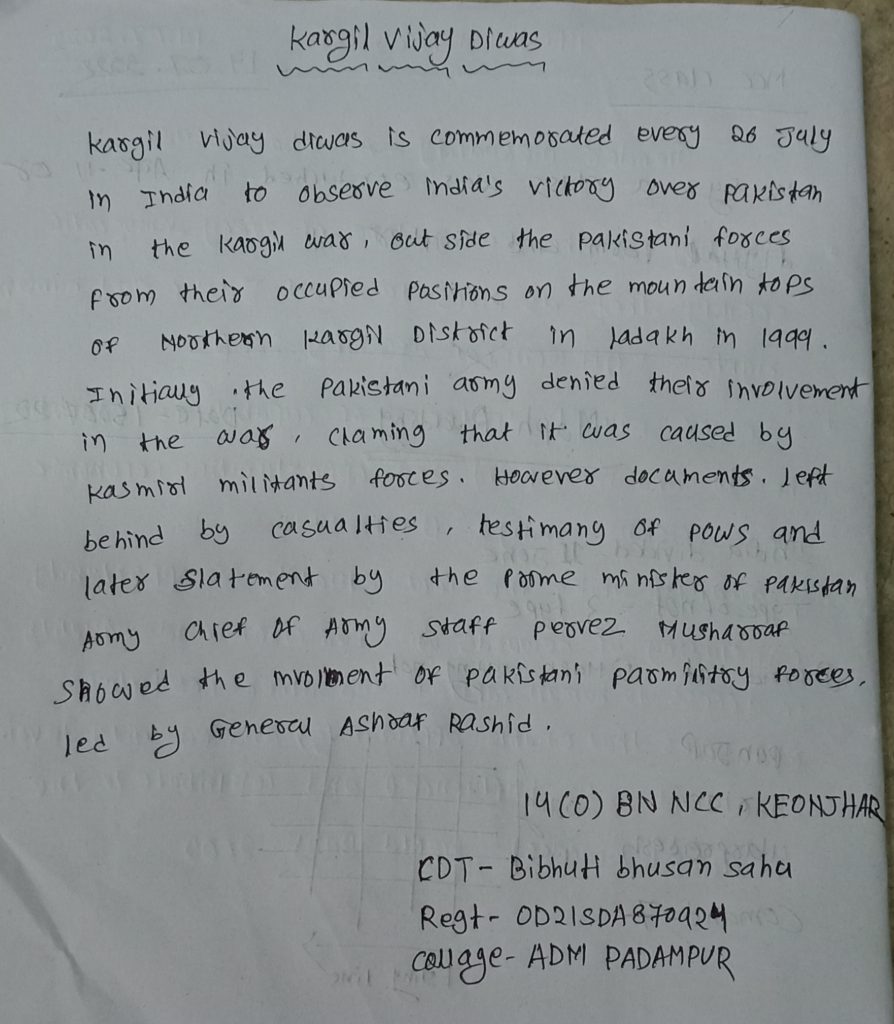 Kargil Vijay Diwas
Kargil vijay diwas is commemorated every 26 July
in India to observe india's victory over pakistan
in the Kargil war, out side the pakistani forces
from their occupied positions on the mountain tops
of Northern Kargil District in ladakh in 1999.
Initially .the Pakistani army denied their involvement
in the war, claming that it was caused by
Kasmiri militants forces. However documents. left
behind by casualties, testimany of POWS and
later statement by the prime minister of pakistan
Army Chief Of Army Staff pervez Musharraf
Showed the of pakistani parmilitry forces,
led by General Ashraf Rashid.
14(O) BN NCC, KEONJHAR
CDT- Bibhuti bhusan sahu
Regt- OD21SDA870924
Collage- ADM PADAMPUR